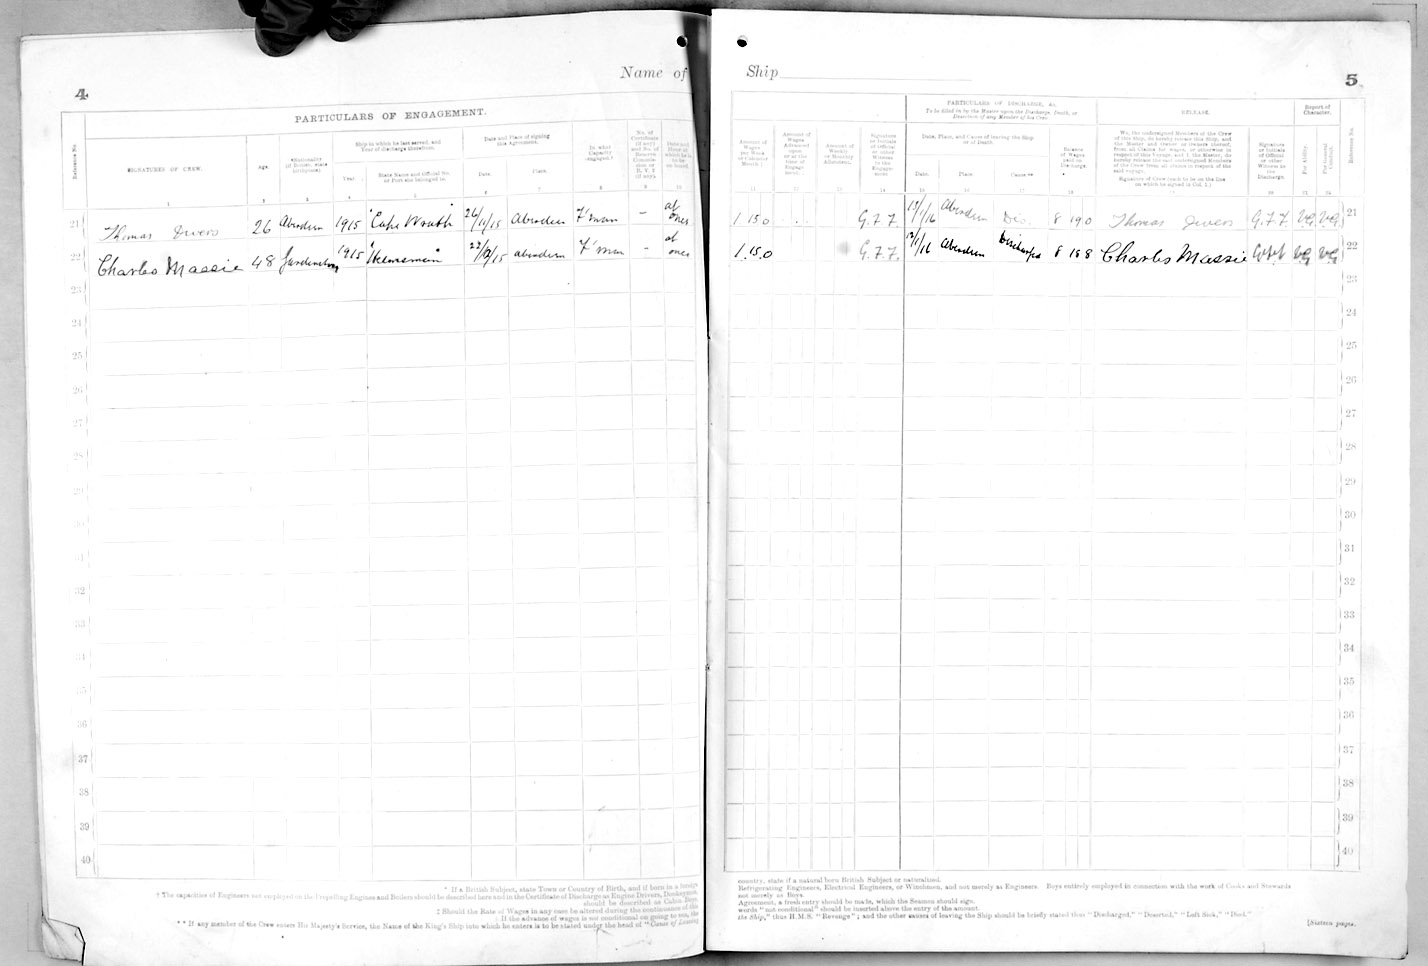 4
Name of
PARTICULARS OF ENGAGEMENT.
Reference No.
SIGNATURES OF CREW.
Age.
Nationality
(If British, state
birthplace).
Ship in which he last served, and
Year of discharge therefrom.
Year
State Name and Official No.
or Port she belonged to.
Date and Place of signing
this Agreement.
Date.
Place.
In what
Capacity
engaged.
No. of
Certificate
(if any)
and No. of
Reserve
Commis-
sion or
R. V. 2
(if any).
Date and
Hour at
which he is
to be
on board.
1 2 3 4 5 6 7 8 9 10
21 Thomas 26 Aberdeen 1915 "Cape Wrath" 26/11/15 Aberdeen F'man - at once
22 Charles Massie 48 1915 "Helmsman" Aberdeen F'man - at once
23
24
25
26
27
28
29
30
31
32
33
34
35
36
37
38
39
40
* If a British Subject, state Town or Country of Birth, and if born in a foreign
† The capacities of Engineers not employed on the Propelling Engines and Boilers should be described here and in the Certificate of Discharge as Engine Drivers, Donkeymen,
should be described as Cabin Boys,
‡ Should the Rate of Wages in any case be altered during the continuance of this
: If the advance of wages is not conditional on going to sea, the
** If any member of the Crew enters His Majesty's Service, the Name of the King's Ship into which he enters is to be stated under the head of "Cause of Leaving
Ship
5
PARTICULARS OF DISCHARGE, &c.
To be filled in by the Master upon the Discharge, Death, or
Desertion of any Member of his Crew.
RELEASE.
Report of
Character.
Amount of
Wages
per Week
or Calendar
Month.
Amount of
Wages
Advanced
upon
or at the
time of
Engage-
ment.
Amount of
Weekly
or Monthly
Allotment.
Signature
or Initials
of Official
or other
Witness
to the
Engage-
ment.
Date, Place, and Cause of leaving the Ship
or of Death.
Date.
Place.
Cause **
Balance
of Wages
paid on
Discharge.
We, the undersigned Members of the Crew
of this Ship, do hereby release this Ship, and
the Master and Owner or Owners thereof,
from all Claims for wages, or otherwise in
respect of this Voyage; and I, the Master, do
hereby release the said undersigned Members
of the Crew from all claims in respect of the
said voyage.
Signature of Crew (each to be on the line
on which he signed in Col. 1.)
Signature
or Initials
of Official
or other
Witness to
the
Discharge.
For Ability.
For General
Conduct.
Reference No.
11 12 13 14 15 16 17 18 19 20 21 22
1. 15. 0 G.F.F. Aberdeen Dis. 8 19 0 Thomas G.F.F. V.G. V.G. 21
1. 15. 0 G.F.F. Aberdeen Discharged 8 18 8 Charles Massie V.G. V.G. 22
23
24
25
26
27
28
29
30
31
32
33
34
35
36
37
38
39
40
country, state if a natural born British Subject or naturalized.
Refrigerating Engineers, Electrical Engineers, or Winchmen, and not merely as Engineers. Boys entirely employed in connection with the work of Cooks and Stewards
not merely as Boys.
Agreement, a fresh entry should be made, which the Seamen should sign.
words "not conditional" should be inserted above the entry of the amount.
the Ship," thus H.M.S. "Revenge"; and the other causes of leaving the Ship should be briefly stated thus "Discharged," "Deserted," "Left Sick," "Died."
[Sixteen pages.